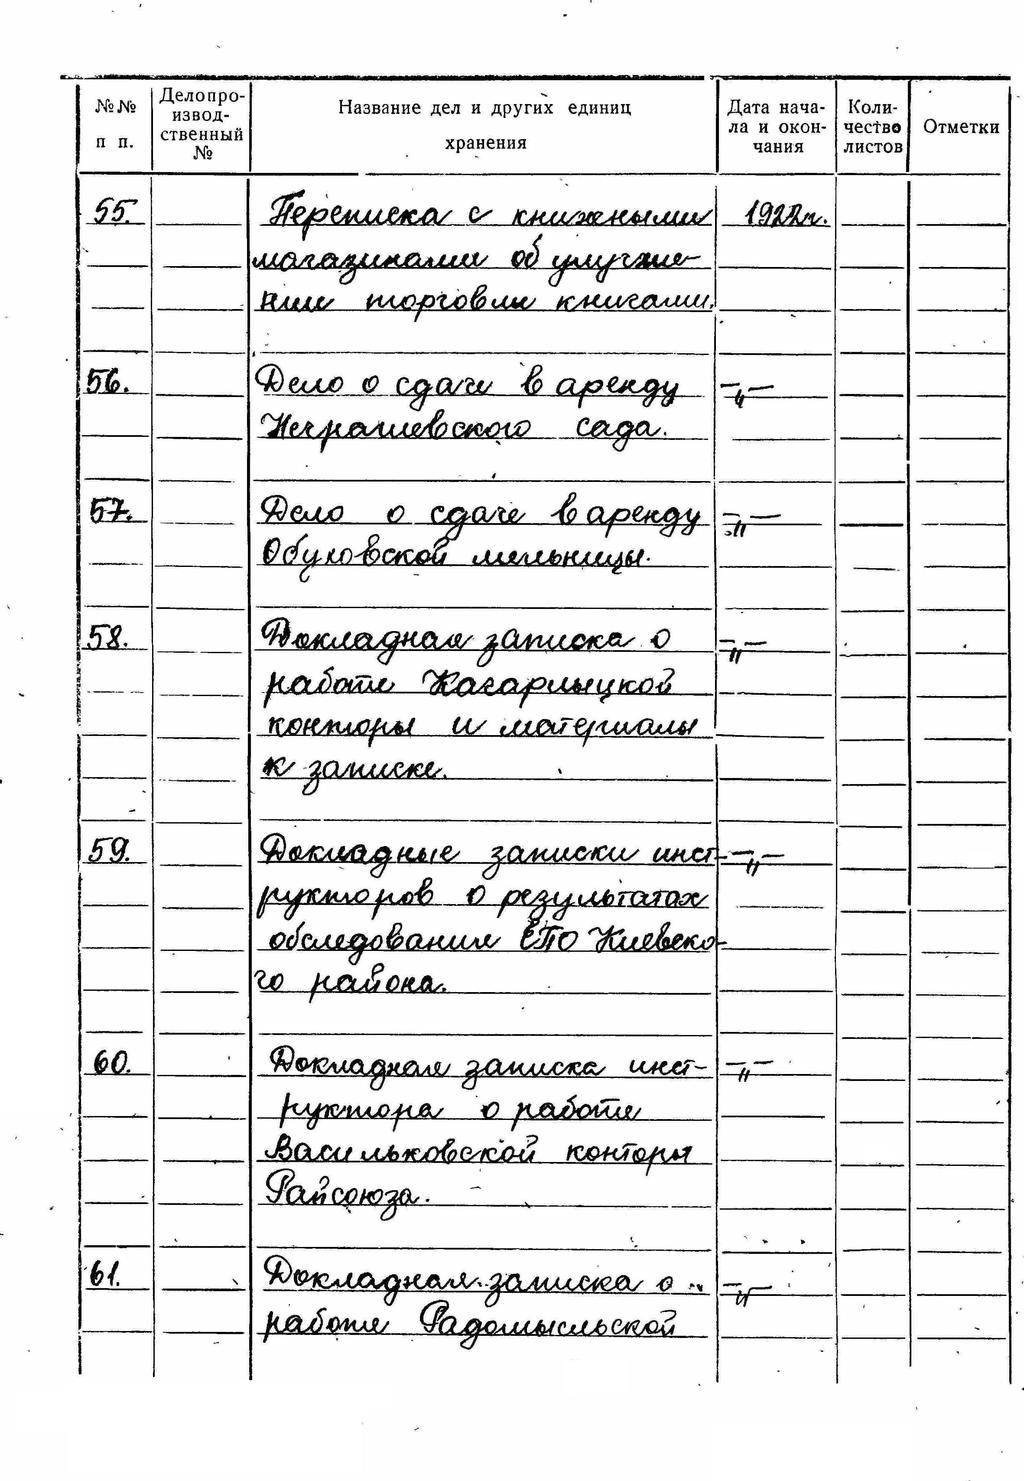 №№ п п.
Делопроизвод-ственный №
Название дел и других единиц хранения
Дата нача-ла и окон-чания
Коли-чество листов
Отметки
55. Переписка с книжными 1922г.
магазинами об улучше-
нии торговли книгами.
56. Дело о сдаче в аренду —"—
сада.
57. Дело о сдаче в аренду —"—
Обуховской мельницы.
58. Докладная записка о —"—
работе Кагарлыцкой
конторы и материалы
к записке.
59. Докладные записки инст- —"—
рукторов о результатах
обследования ЕПО Киевско-
го района.
60. Докладная записка инст- —"—
руктора о работе
Васильковской конторы
Райсоюза.
61. Докладная записка о —"—
работе Радомысльской